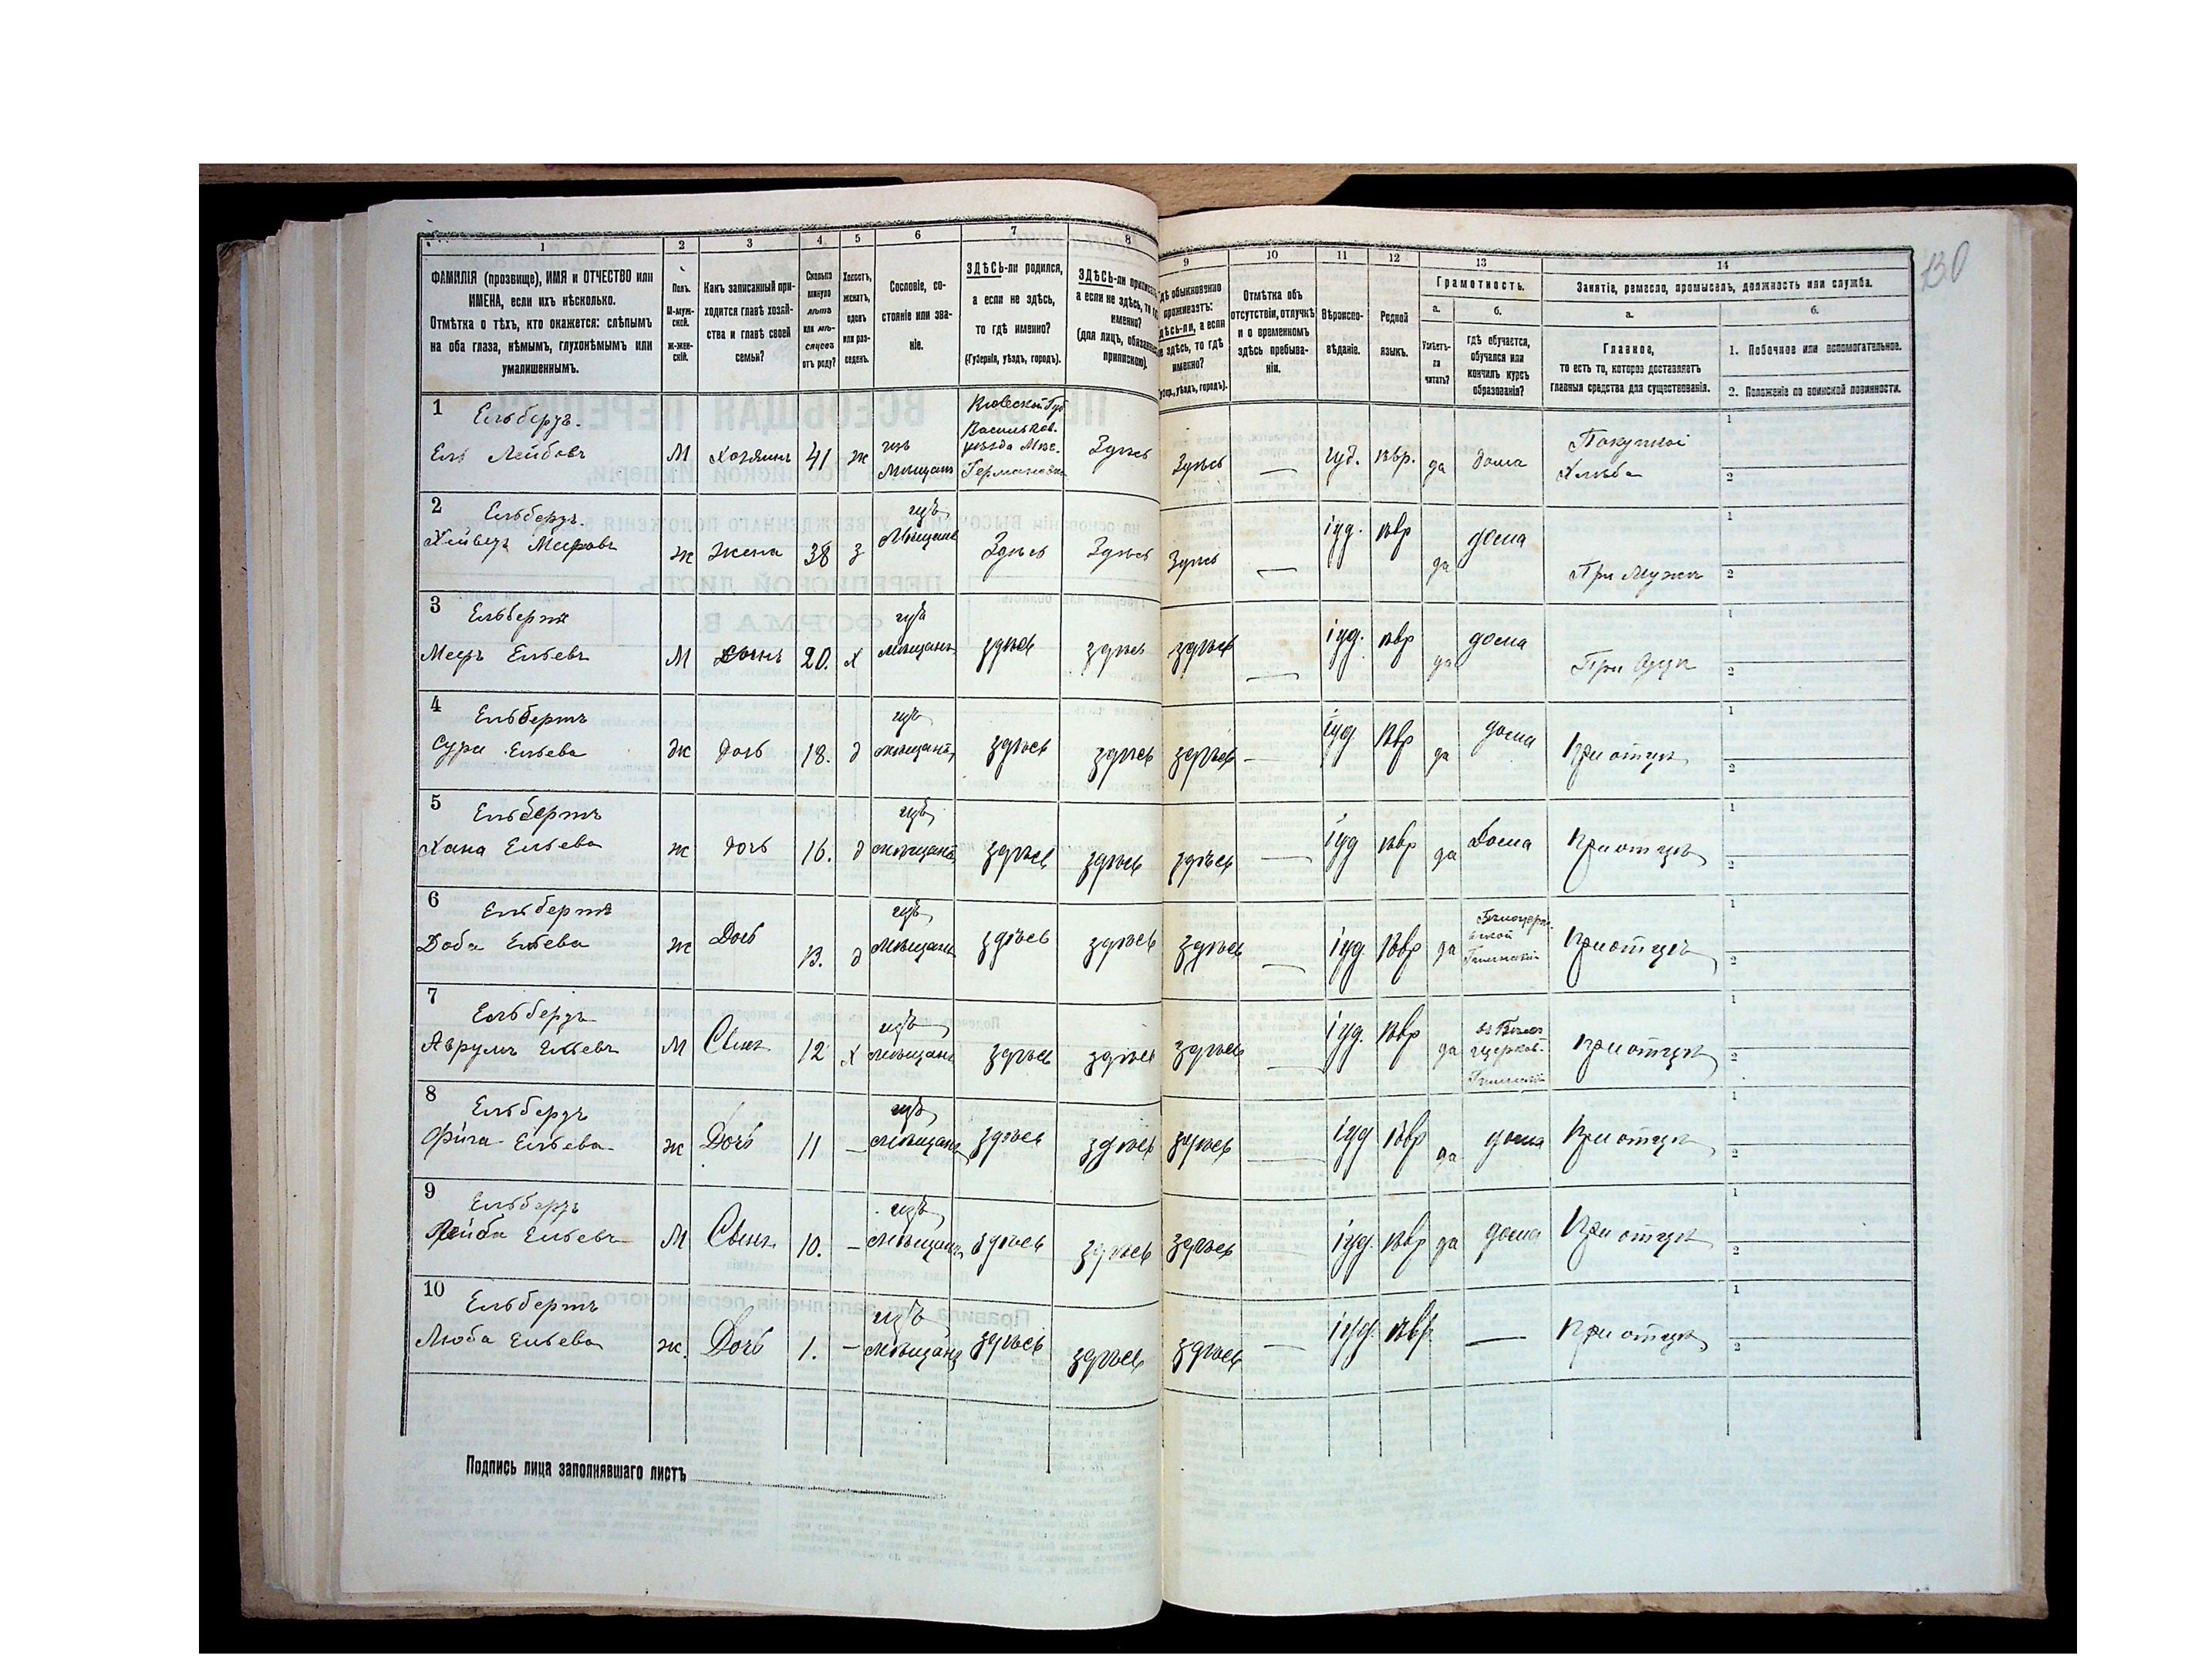 130
1 2 3 4 5 6 7 8 9 10 11 12 13 14
ФАМИЛІЯ (прозвище), ИМЯ и ОТЧЕСТВО или
ИМЕНА, если ихъ нѣсколько.
Отмѣтка о тѣхъ, кто окажется: слѣпымъ
на оба глаза, нѣмымъ, глухонѣмымъ или
умалишеннымъ.
Полъ.
М-муж-
ской.
Ж-жен-
скій.
Какъ записанный при-
ходится главѣ хозяй-
ства и главѣ своей
семьи?
Сколько
минуло
лѣтъ
или мѣ-
сяцевъ
отъ роду?
Холостъ,
женатъ,
вдовъ
или раз-
веденъ.
Сословіе, со-
стояніе или зва-
ніе.
ЗДѢСЬ-ли родился,
а если не здѣсь,
то гдѣ именно?
(Губернія, уѣздъ, городъ).
ЗДѢСЬ-ли приписанъ
а если не здѣсь, то гдѣ
именно?
(для лицъ, обязанныхъ
припискою).
гдѣ обыкновенно
проживаетъ:
здѣсь-ли, а если
не здѣсь, то гдѣ
именно?
(Губер., уѣздъ, городъ).
Отмѣтка объ
отсутствіи, отлучкѣ
и о временномъ
здѣсь пребыва-
ніи.
Вѣроиспо-
вѣданіе.
Родной
языкъ.
Грамотность.
а. б.
Умѣетъ-
ли
читать?
гдѣ обучается,
обучался или
кончилъ курсъ
образованія?
Занятіе, ремесло, промыселъ, должность или служба.
а. б.
Главное,
то есть то, которое доставляетъ
главныя средства для существованія.
1. Побочное или вспомогательное.
2. Положеніе по воинской повинности.
1 Ельбергъ.
Ель Лейбовъ М Хозяинъ 41 ж изъ Мѣщанъ
Кіевской Губ
Васильков.
уѣзда Мѣс.
Германовка
Здѣсь Здѣсь — іуд. евр. да дома Покупкой
Хлѣба 1 2
2 Ельбергъ.
Мееровъ ж жена 38 з изъ Мѣщанъ Здѣсь Здѣсь Здѣсь — іуд. евр да дома При Мужѣ 1 2
3 Ельбертъ
Меер Ельевъ М сынъ 20. х изъ мѣщанъ здѣсь здѣсь здѣсь — іуд. евр да дома При Отцѣ 1 2
4 Ельбертъ
Сура Ельева ж дочь 18. д изъ мѣщанъ здѣсь здѣсь здѣсь — іуд. евр да дома При отцѣ 1 2
5 Ельбертъ
Хана Ельева ж дочь 16. д изъ мѣщанъ здѣсь здѣсь здѣсь — іуд евр да Дома При отцѣ 1 2
6 Ельбертъ
Доба Ельева ж Дочь 13. д изъ Мѣщанъ здѣсь здѣсь здѣсь — іуд. евр да При отцѣ 1 2
7 Ельбергъ
Аврумъ Ельевъ М Сынъ 12 х изъ мѣщанъ здѣсь здѣсь здѣсь — іуд. евр да При отцѣ 1 2
8 Ельбергъ
Фейга Ельева ж Дочь 11 — изъ мѣщанъ здѣсь здѣсь здѣсь — іуд евр да дома При отцѣ 1 2
9 Ельбергъ
Лейба Ельевъ М Сынъ 10. — изъ мѣщанъ здѣсь здѣсь здѣсь — іуд. евр да дома При отцѣ 1 2
10 Ельбертъ
Люба Ельева ж. Дочь 1. — изъ мѣщанъ здѣсь здѣсь здѣсь — іуд. евр — При отцѣ 1 2
Подпись лица заполнявшаго листъ